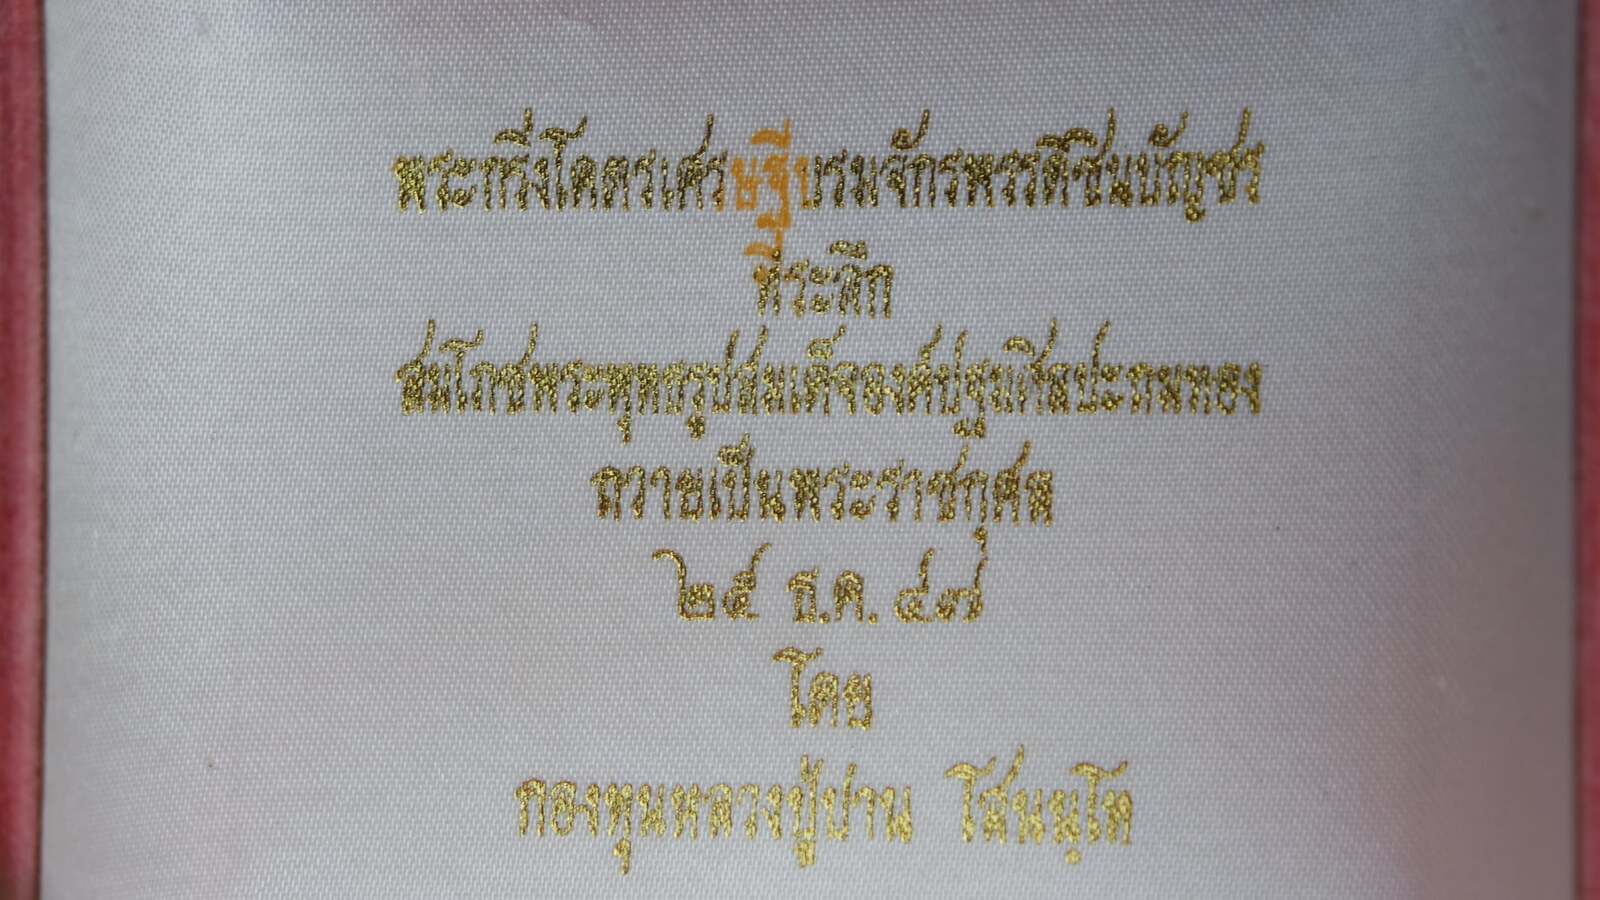 พระกริ่งโคตรเศรษฐีบรมจักรพรรดิชินบัญชร
ที่ระลึก
สมโภชพระพุทธรูปสมเด็จองค์ปฐมศิลปะถมทอง
ถวายเป็นพระราชกุศล
๒๕ ธ.ค. ๔๗
โดย
กองทุนหลวงปู่ปาน โสนนฺโท